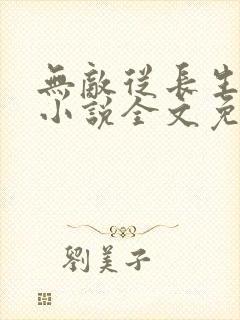 無敵從長生
小說全文免
劉美子